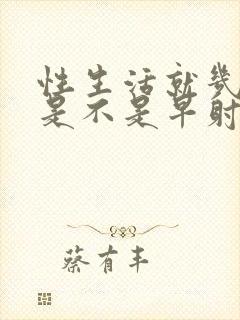 性生活就几
是不是早射
蔡有丰